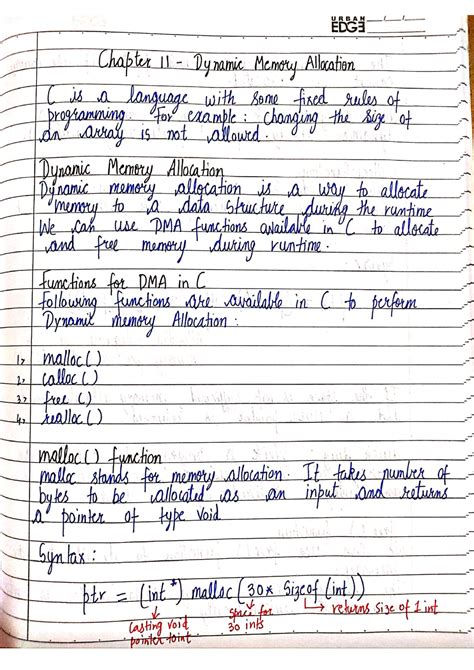 URBAN
EDGE
Chapter 11 - Dynamic Memory Allocation
C is a language with some fixed rules of
programming. For example: changing the size of
an array is not allowed.
Dynamic Memory Allocation
Dynamic memory allocation is a way to allocate
memory to a data structure during the runtime
We can use DMA functions available in C to allocate
and free memory during runtime.
Functions for DMA in C
Following functions are available in C to perform
Dynamic memory Allocation:
1> malloc()
2> calloc()
3> free()
4> realloc()
malloc() function
malloc stands for memory allocation. It takes number of
bytes to be allocated as an input and returns
a pointer of type void
Syntax:
ptr = (int*) malloc(30* sizeof(int))
Casting void pointer to int
space for 30 ints
returns size of 1 int